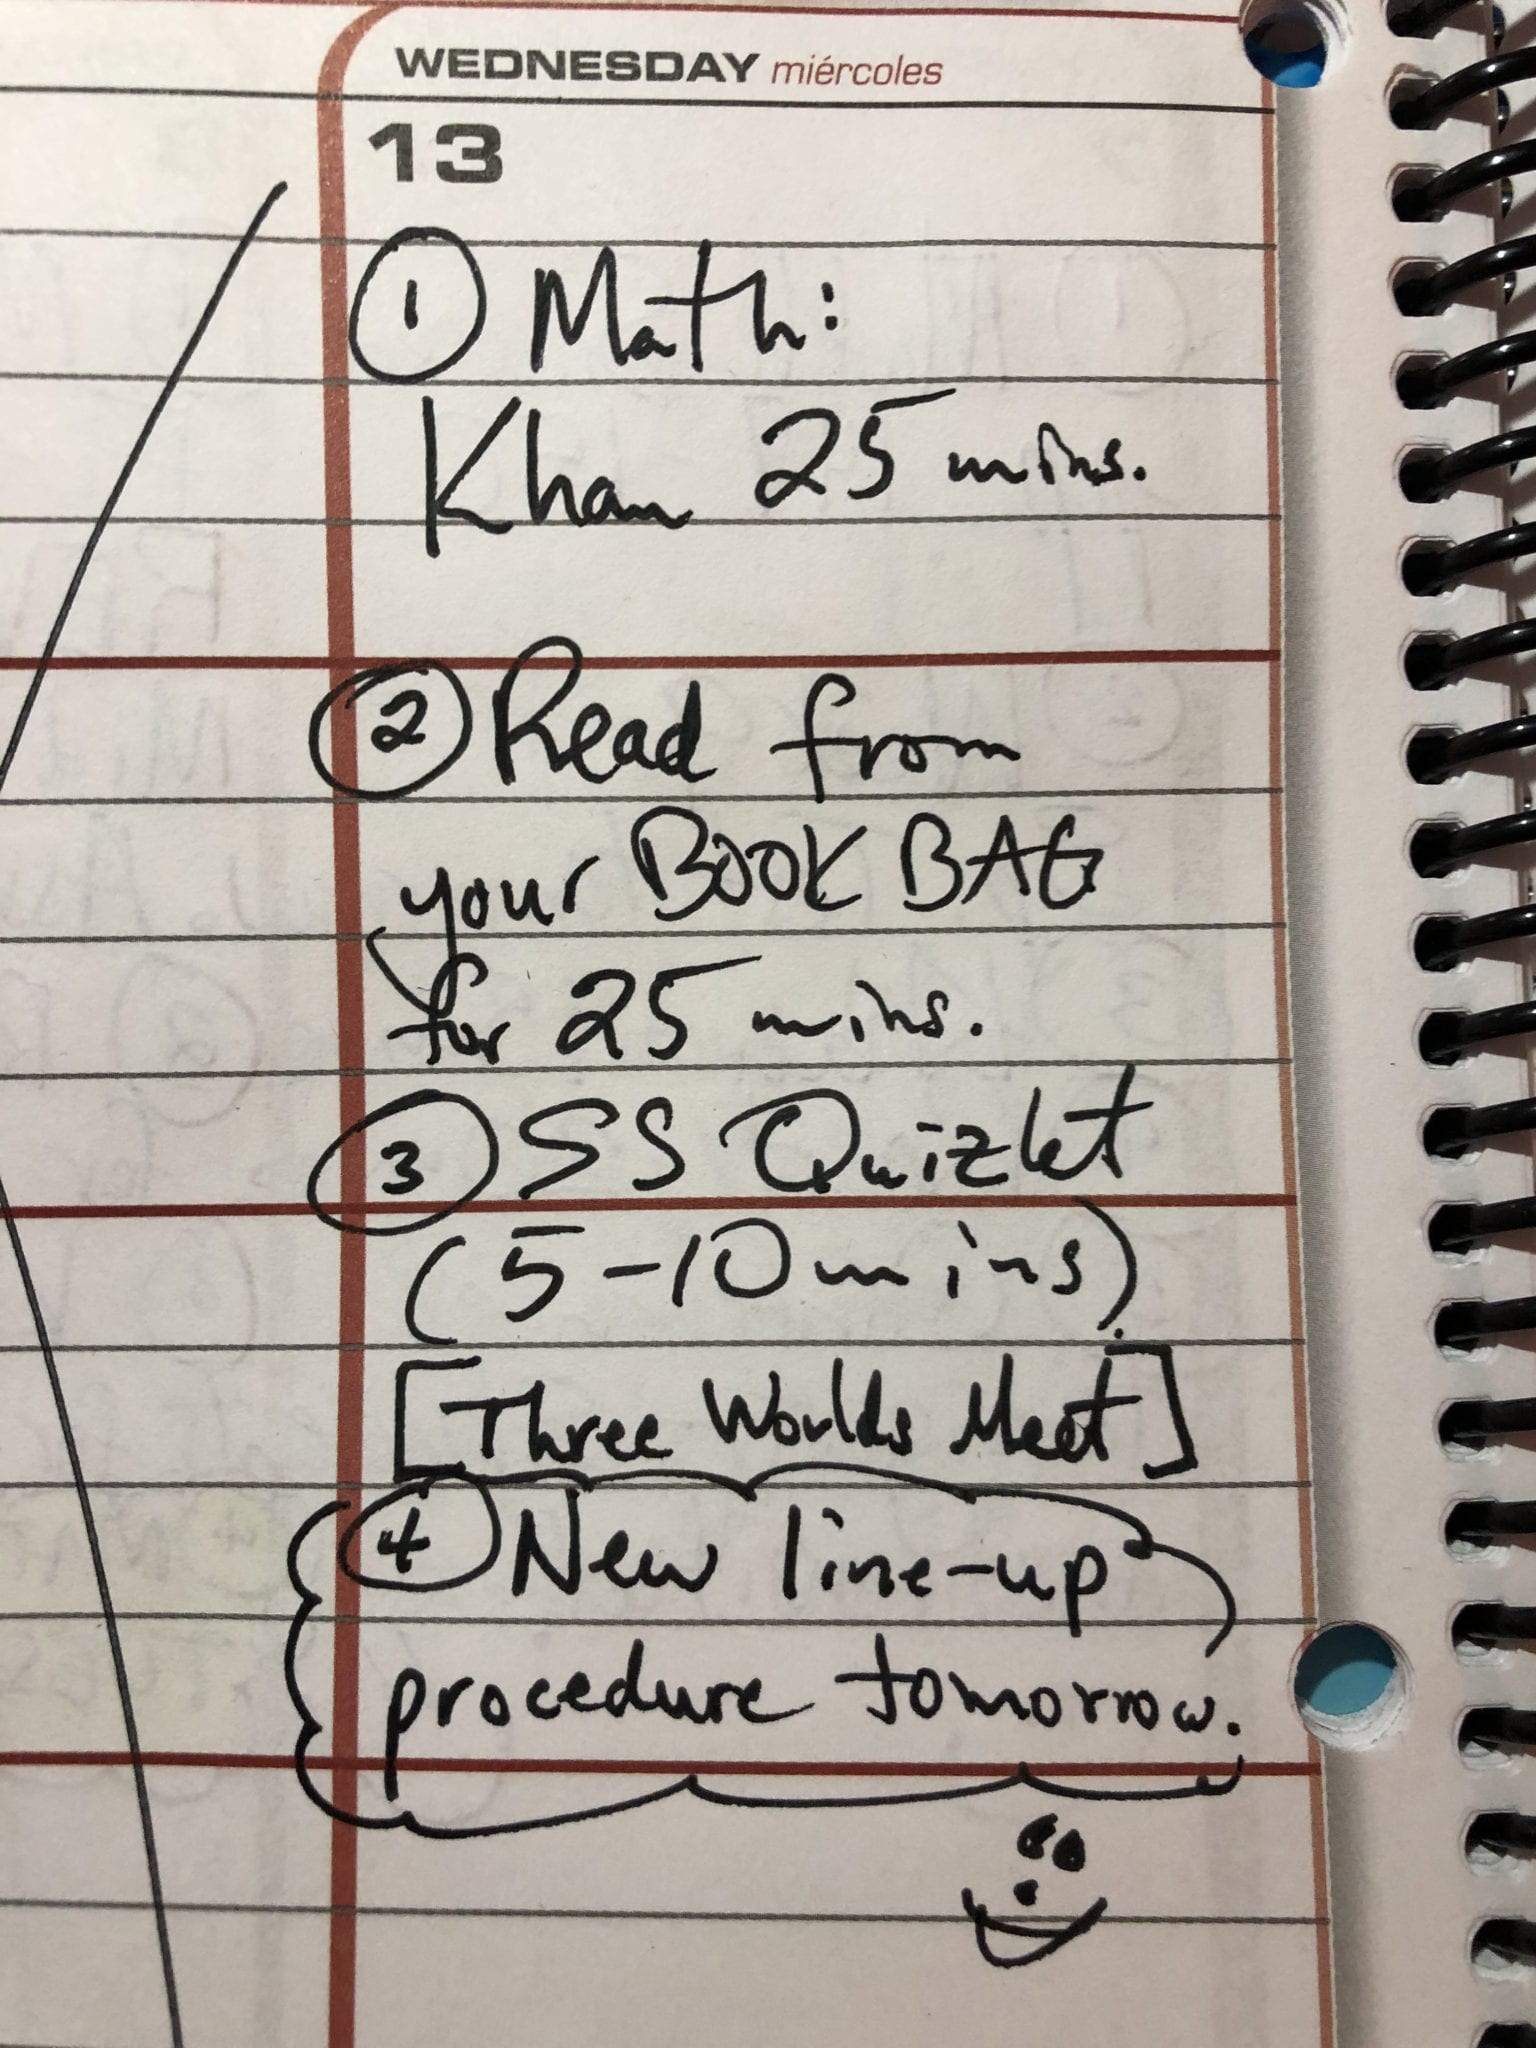 WEDNESDAY miércoles
13
① Math:
Khan 25 mins.
② Read from
your BOOK BAG
for 25 mins.
③ SS Quizlet
(5-10 mins).
[Three Worlds Meet]
④ New line-up
procedure tomorrow.